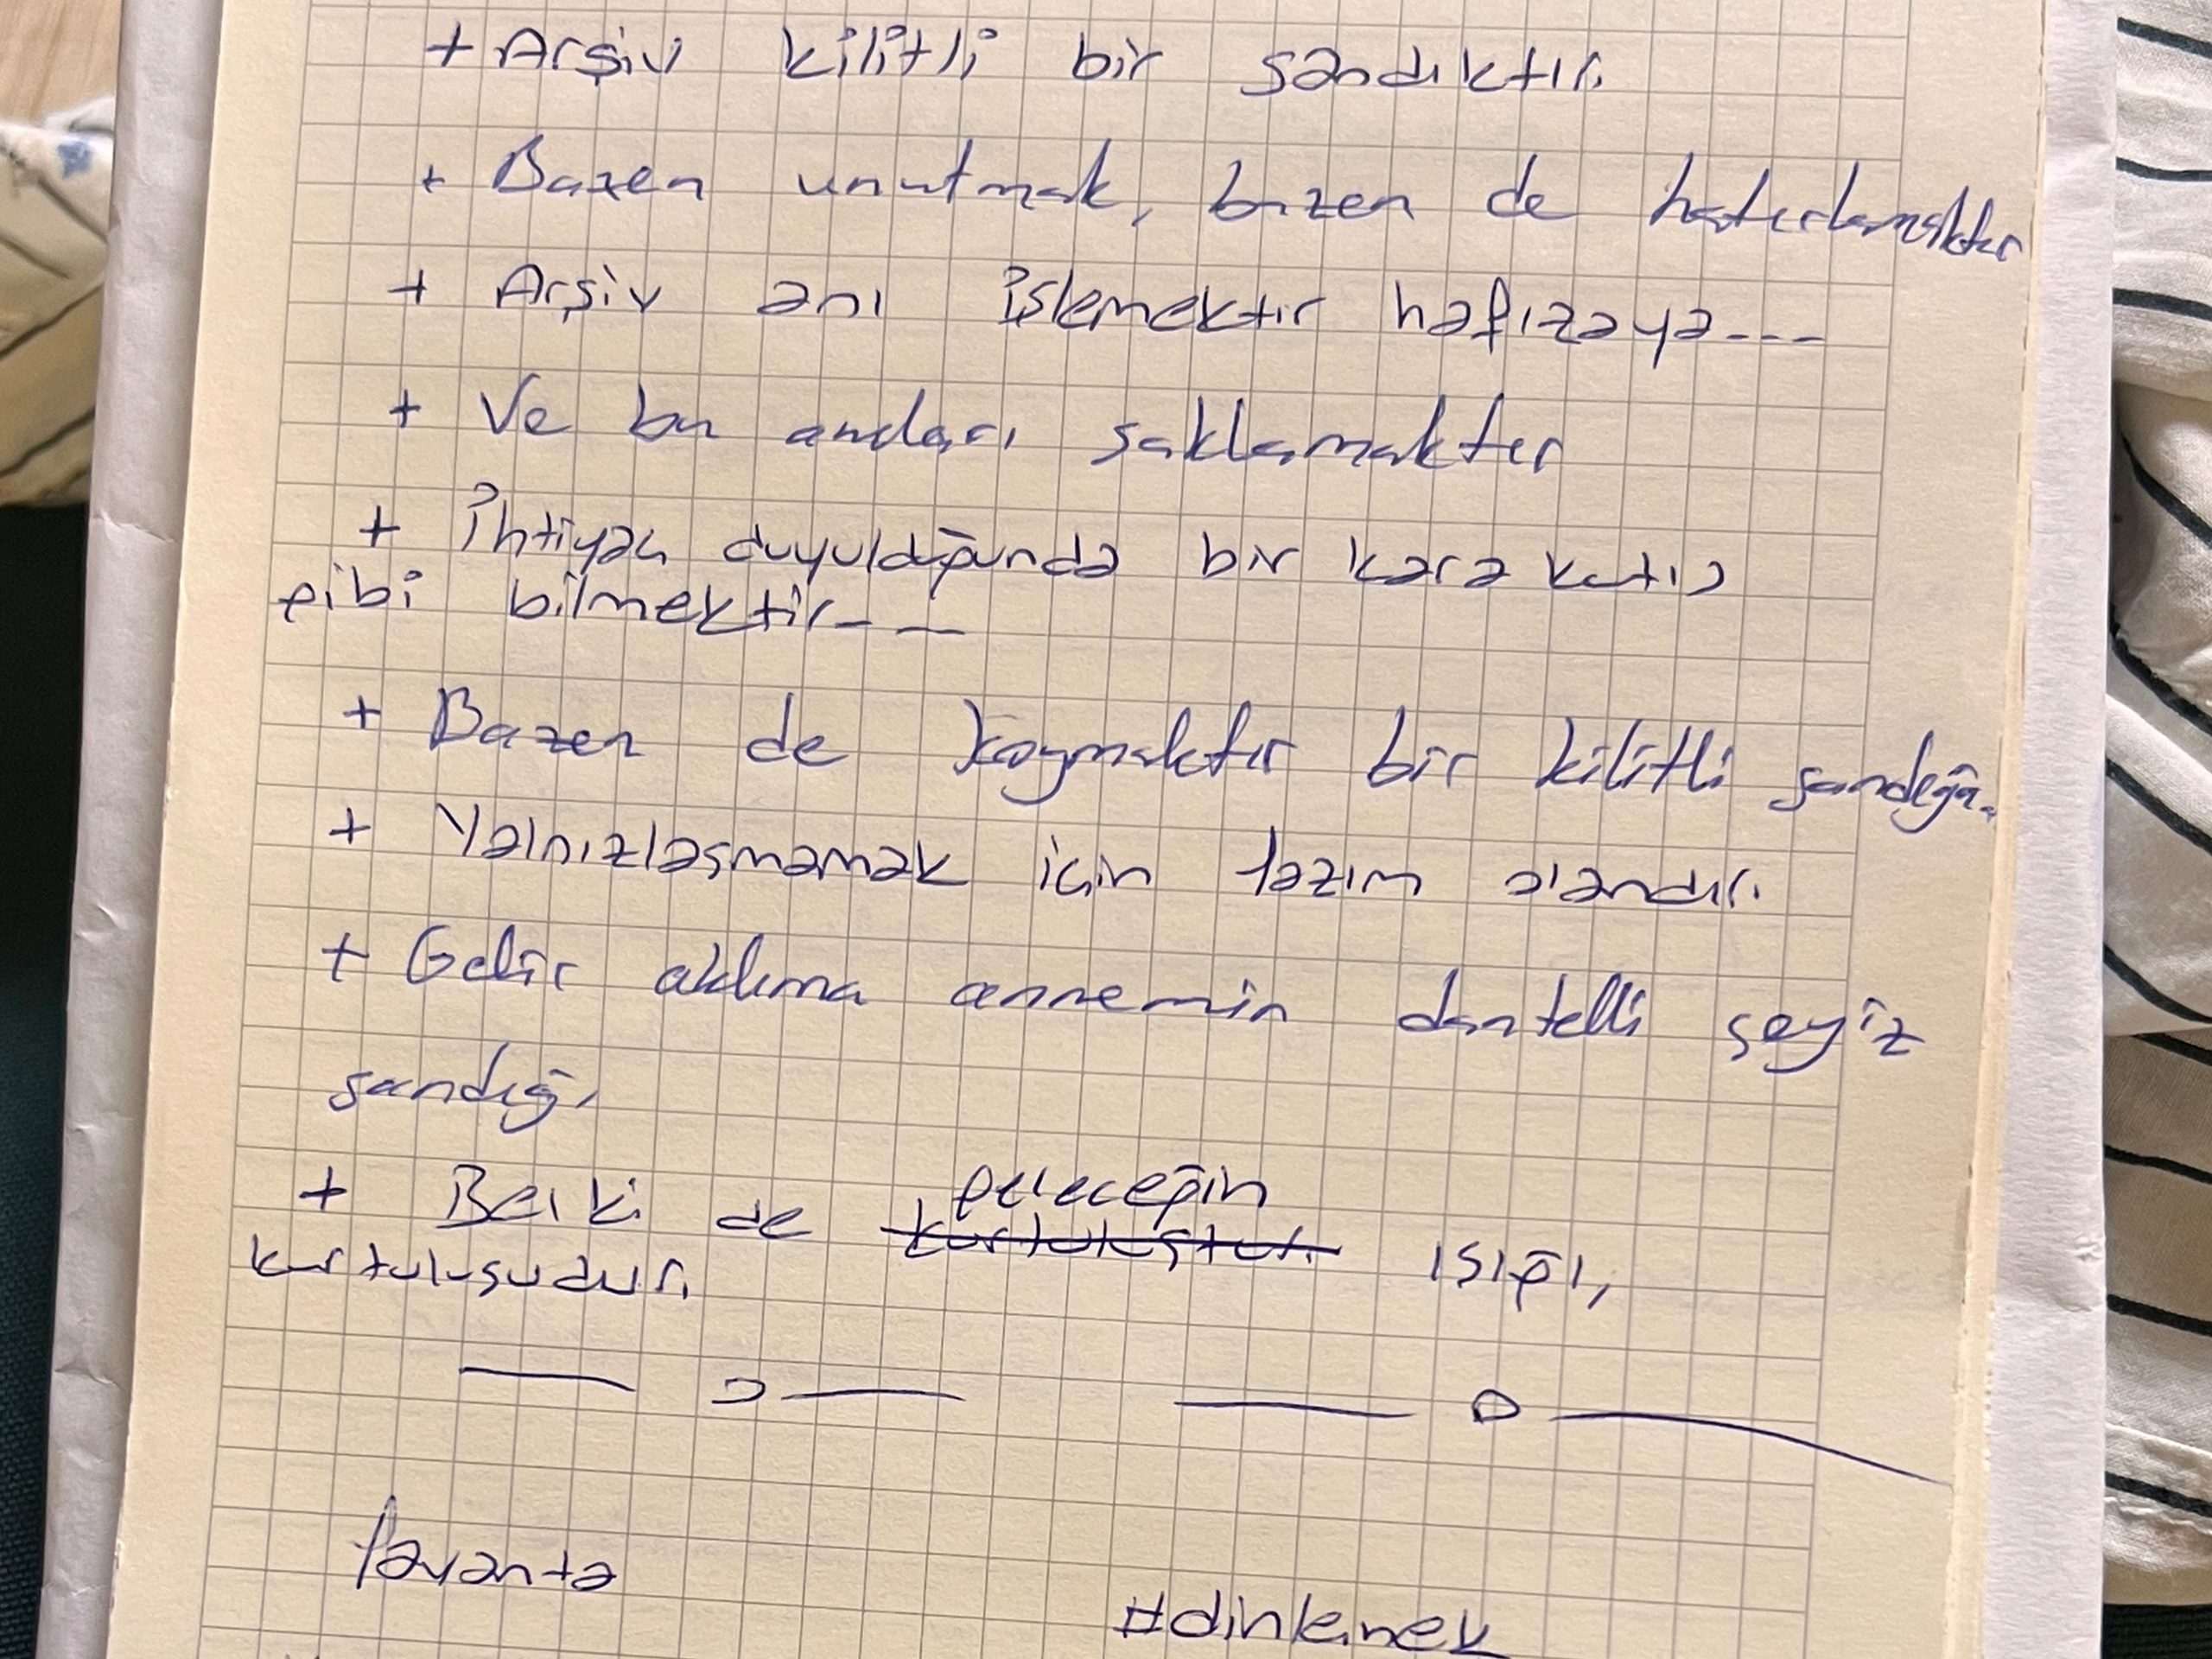 + Arşiv kilitli bir sandıktır.
+ Bazen unutmak, bazen de hatırlamaktır
+ Arşiv anı işlemektir hafızaya---
+ Ve bu anıları saklamaktır
+ İhtiyaç duyulduğunda bir kara kutu
gibi bilmektir--
+ Bazen de koymaktır bir kilitli sandığa.
+ Yalnızlaşmamak için lazım olandır.
+ Gelir aklıma annemin dantelli şeyiz
sandığı
+ Belki de geleceğin
kurtuluştur. ışığı,
kurtuluşudur.
lavanta
#dinlemek